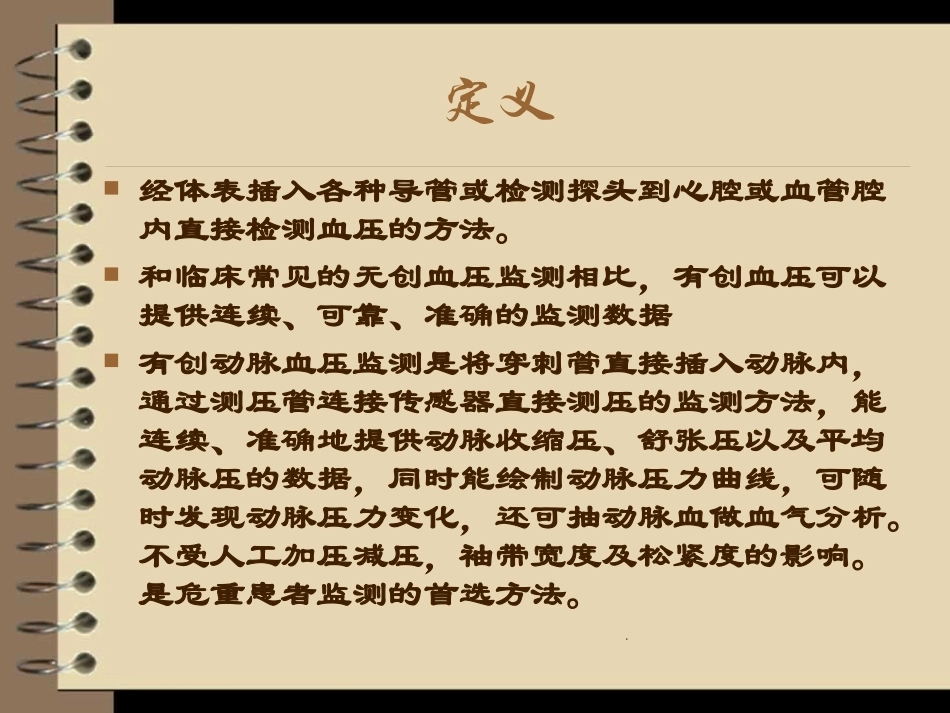 定义
经体表插入各种导管或检测探头到心腔或血管腔
内直接检测血压的方法。
和临床常见的无创血压监测相比，有创血压可以
提供连续、可靠、准确的监测数据
有创动脉血压监测是将穿刺管直接插入动脉内，
通过测压管连接传感器直接测压的监测方法，能
连续、准确地提供动脉收缩压、舒张压以及平均
动脉压的数据，同时能绘制动脉压力曲线，可随
时发现动脉压力变化，还可抽动脉血做血气分析。
不受人工加压减压，袖带宽度及松紧度的影响。
是危重患者监测的首选方法。
.